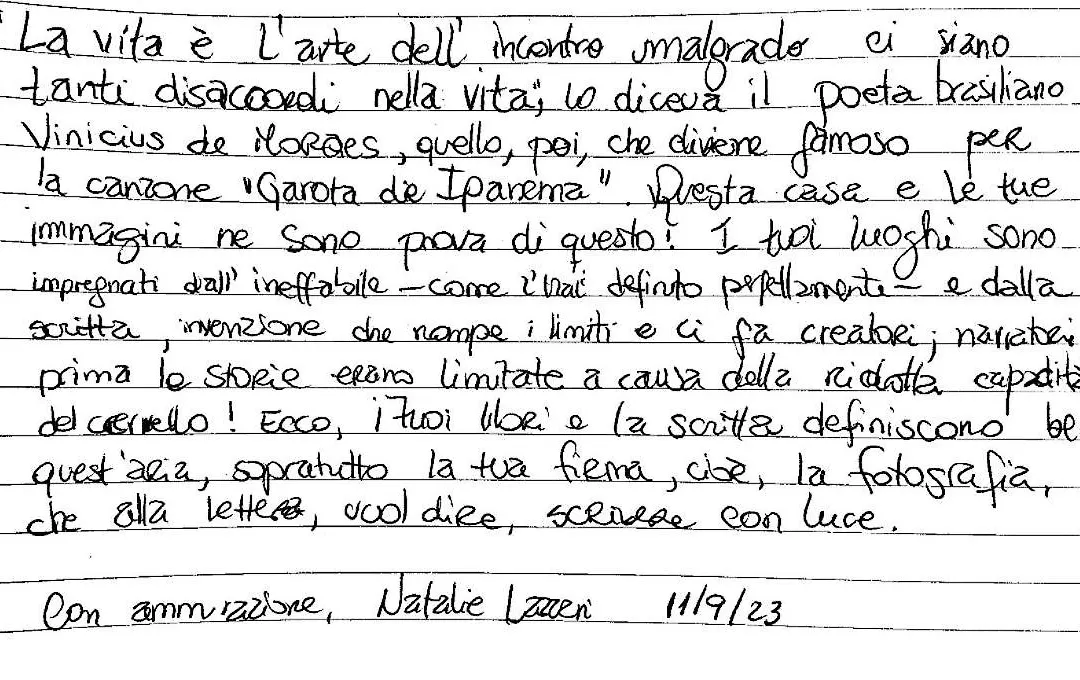 "La vita è l'arte dell'incontro malgrado ci siano
tanti disaccordi nella vita", lo diceva il poeta brasiliano
Vinicius de Moraes, quello, poi, che diviene famoso per
la canzone "Garota de Ipanema". Questa casa e le tue
immagini ne sono prova di questo! I tuoi luoghi sono
impregnati dall'ineffabile – come l'hai definito perfettamente – e dalla
scritta, invenzione che rompe i limiti e ci fa creatori; narratori
prima le storie erano limitate a causa della ridotta capacità
del cervello! Ecco, i tuoi libri e la scritta definiscono be
quest'aria, sopratutto la tua firma, cioè, la fotografia,
che alla lettera, vuol dire, scrivere con luce.
Con ammirazione, Natalie Lazzeri 11/9/23